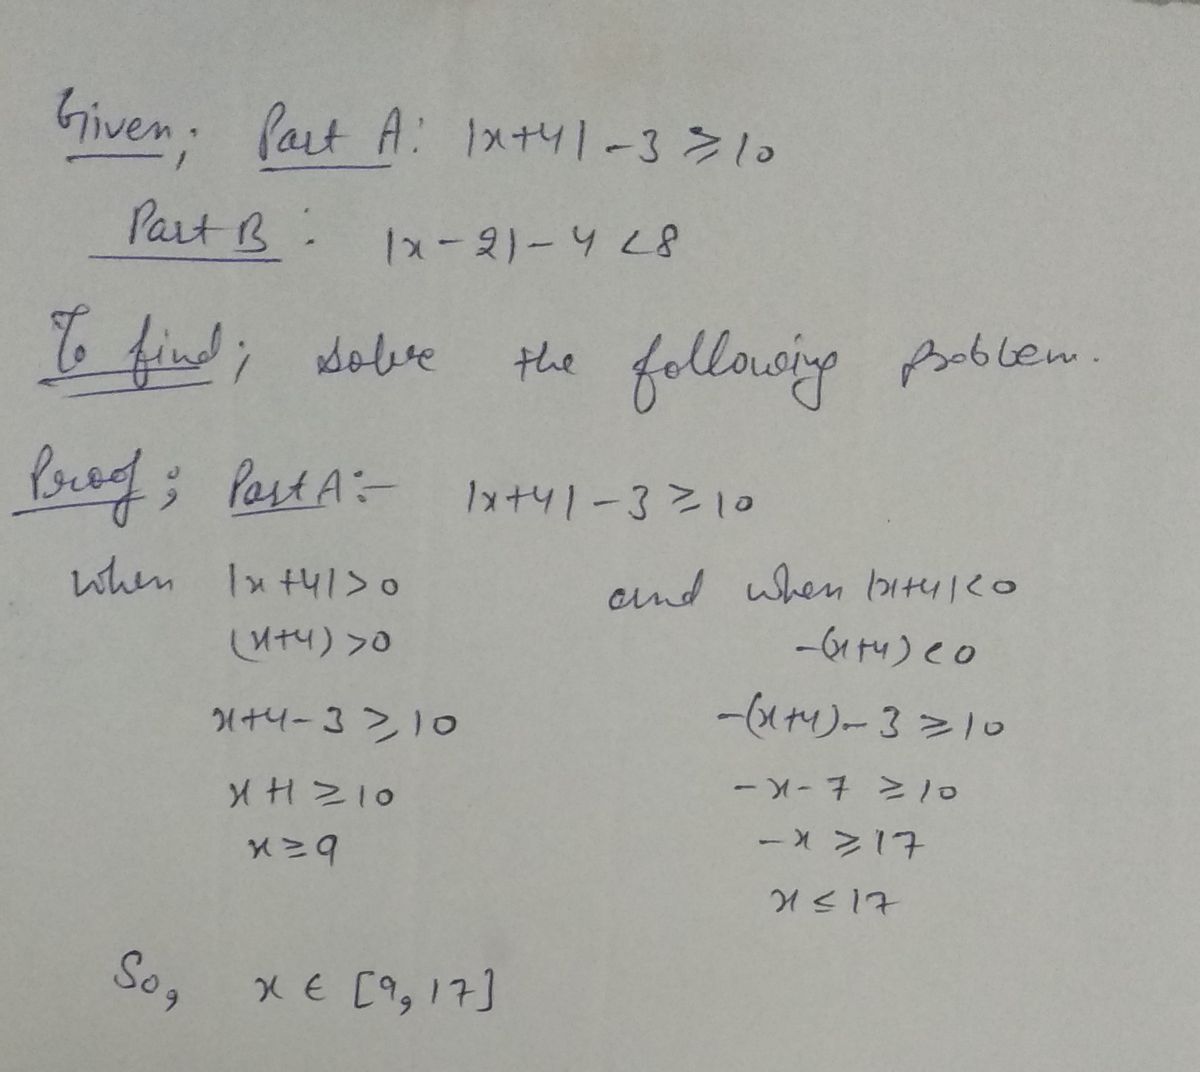 Given; Part A: |x+4| - 3 ≥ 10
Part B : |x - 2| - 4 < 8
To find; solve the following problem.
Proof; Part A:- |x+4| - 3 ≥ 10
when |x+4| > 0 and when |x+4| < 0
(x+4) > 0 -(x+4) < 0
x+4-3 ≥ 10 -(x+4) - 3 ≥ 10
x+1 ≥ 10 -x-7 ≥ 10
x ≥ 9 -x ≥ 17
x ≤ 17
So, x ∈ [9, 17]